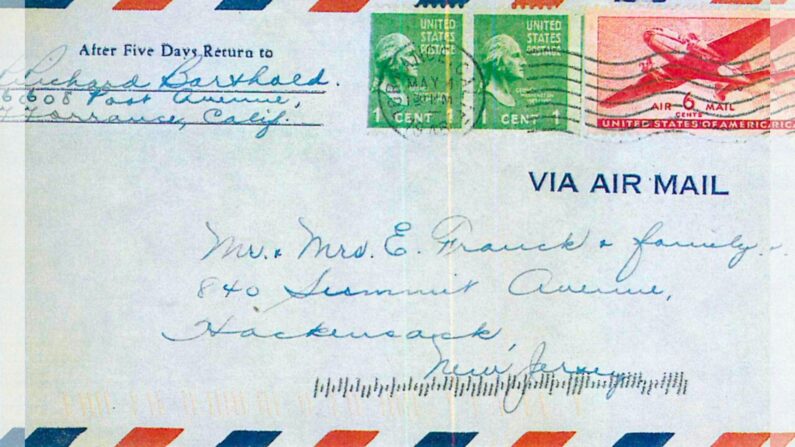 After Five Days Return to
Richard Barthold.
Post Avenue,
Torrance, Calif.
UNITED
STATES
POSTAGE
1 CENT 1
UNITED
STATES
POSTAGE
1 CENT 1
MAY
AIR 6 MAIL
CENTS
UNITED STATES OF AMERICA
VIA AIR MAIL
Mr. & Mrs. E. Franck & family.
840 Summit Avenue,
Hackensack,
New Jersey